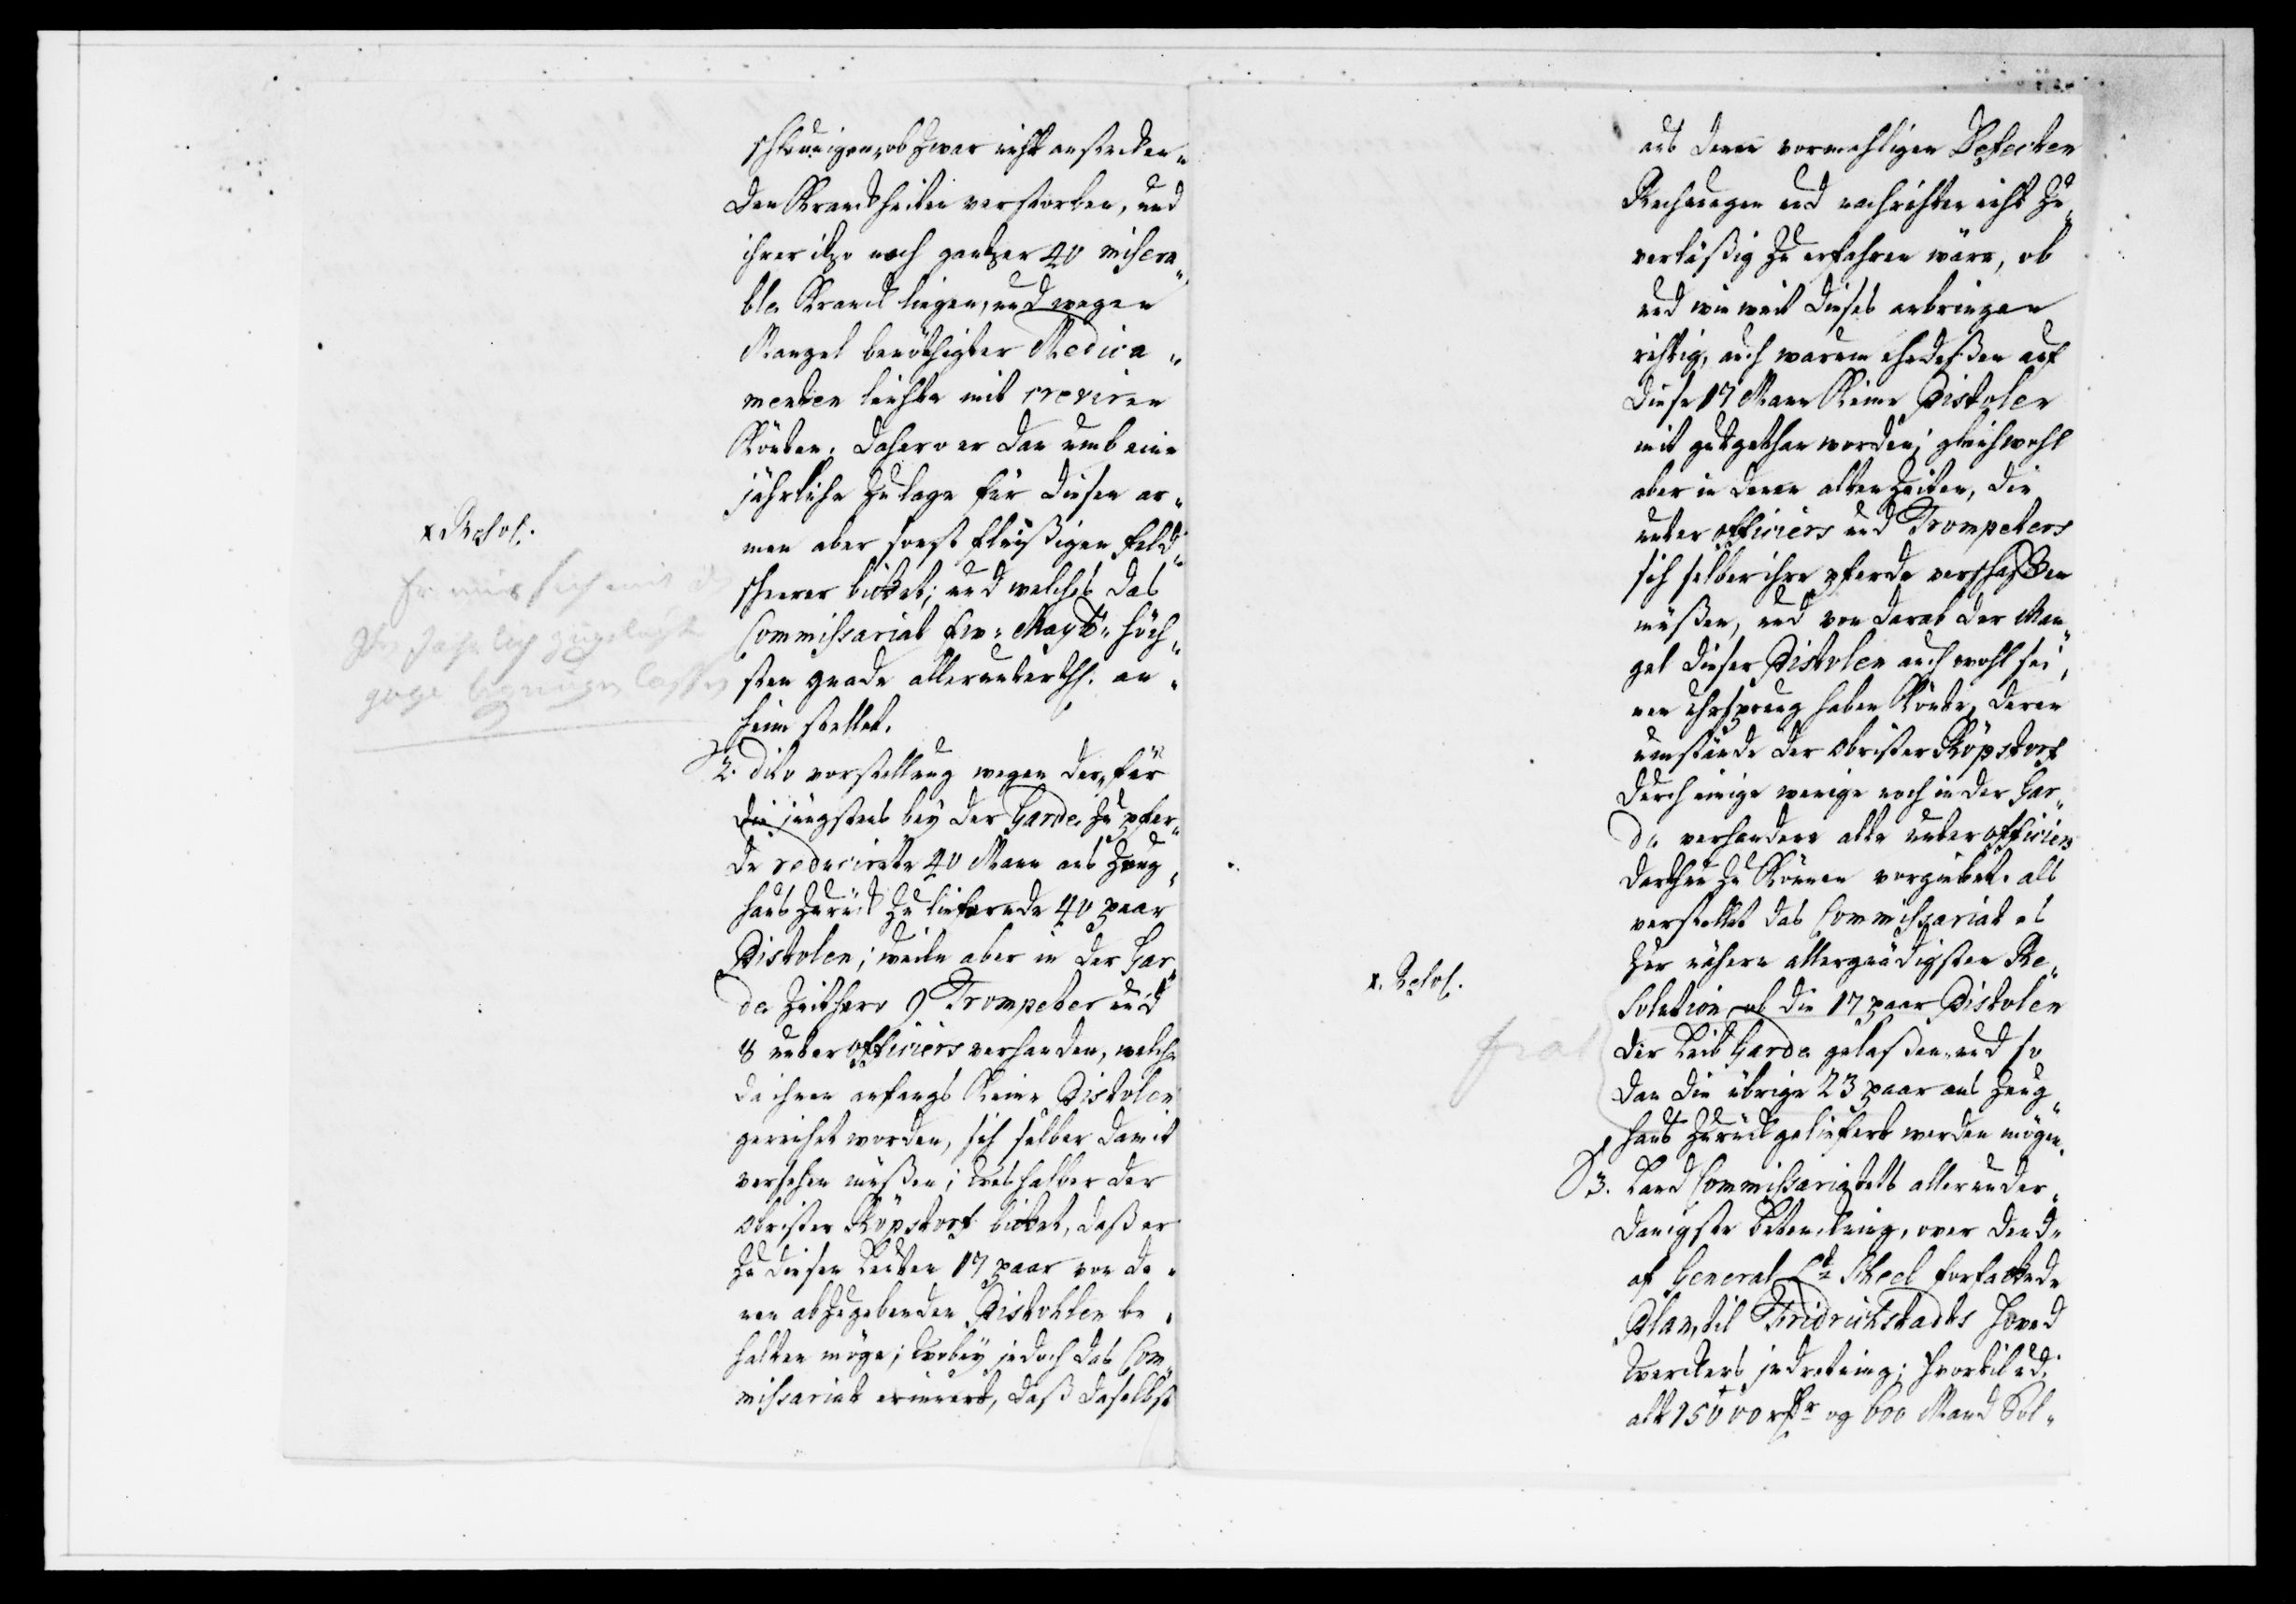 schleunigen, ob zwar nicht anstecken„
den Kranckheiten verstorben, und
ihrer itzo noch gantzer 40 misera„
ble Kranck liegen, und wegen
Mangel benöthigter Medica„
menten leichte mit creviren
Könten. Dahero er dan umb eine
jährliche Zulage für diesen ar„
men aber sonst fleißigen Feld„
scheerer bittet; und welches das
Commissariat Ew: Mayt: höch„
sten gnade allerunterth. an„
heim stellet.
x Resol.
Er mus sich mit
Jahrlich zugelegte
gage begnügen lassen
2. dito vorstellung wegen der, für
die jüngstens bey der Garde zu pfer„
de reducirte 40 Mann ans Zeug„
haus zurück zu liefernde 40 paar
Pistolen; weile aber in der Gar„
de Zeithero 9 Trompeter und
8 unter officiers verhanden, welche
da ihnen anfangs Keine Pistolen
gereichet worden, sich selber damit
versehen müßen; deshalber der
obrister Köpstorf bittet, daß er
zu diesen Leuten 17 paar von de„
nen abzugebenden Pistohlen be„
halten möge; wobey jedoch das Com„
missariat erinnert, daß daselbst
aus denen vormahligen Defecten
Rechnungen und nachrichten nicht zu„
verläßig zu erfahren wäre, ob
und wie weit dieses anbringen
richtig, auch warum ehedeßen auf
diese 17 Mann Keine Pistolen
mit gutgethan worden; gleichwohl
aber in denen alten Zeiten, die
unter officiers und Trompeters
sich selber ihre pferde verschaffen
müßen, und von darab der Man„
gel dieser Pistolen auch wohl sei„
nen Uhrsprung haben Könte, deren
umstände der obrister Köpstorf
durch einige wenige noch in der Gar„
de verhandene alte unter officiers
darthun zu Können vorgiebet. als
verstellet das Commissariat es
zur nähern allergnädigsten Re„
solution, ob die 17 paar Pistolen
der Leib Garde gelaßen und so
dan die übrige 23 paar ans Zeug„
haus zurück geliefert werden mögen.
x. Resol.
fiat
3. Land Commissariatets allerunder„
danigste betenckning, over dend
af General Lt: Scheel forfattede
Plan, til Fridrichstadts Hoved
Værckers indretning; hvortil ud.
alt 15000 rdr og 600 Mand Sol„